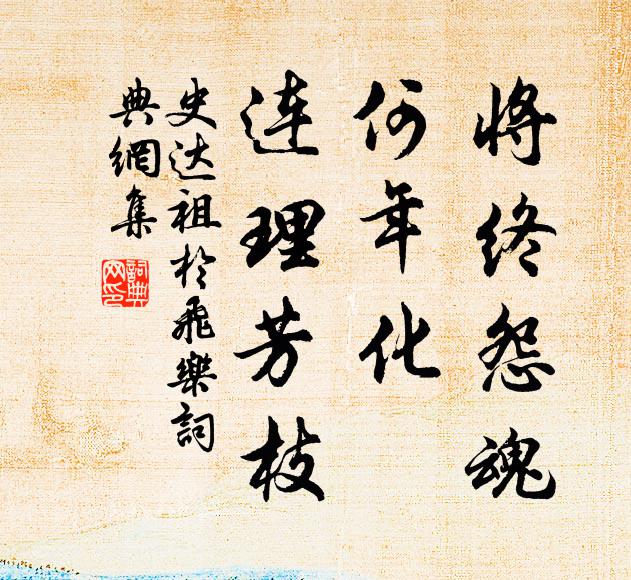 将终怨魂
何年化
连理芳枝
史达祖於飛樂詞
典網集
詞典
网印